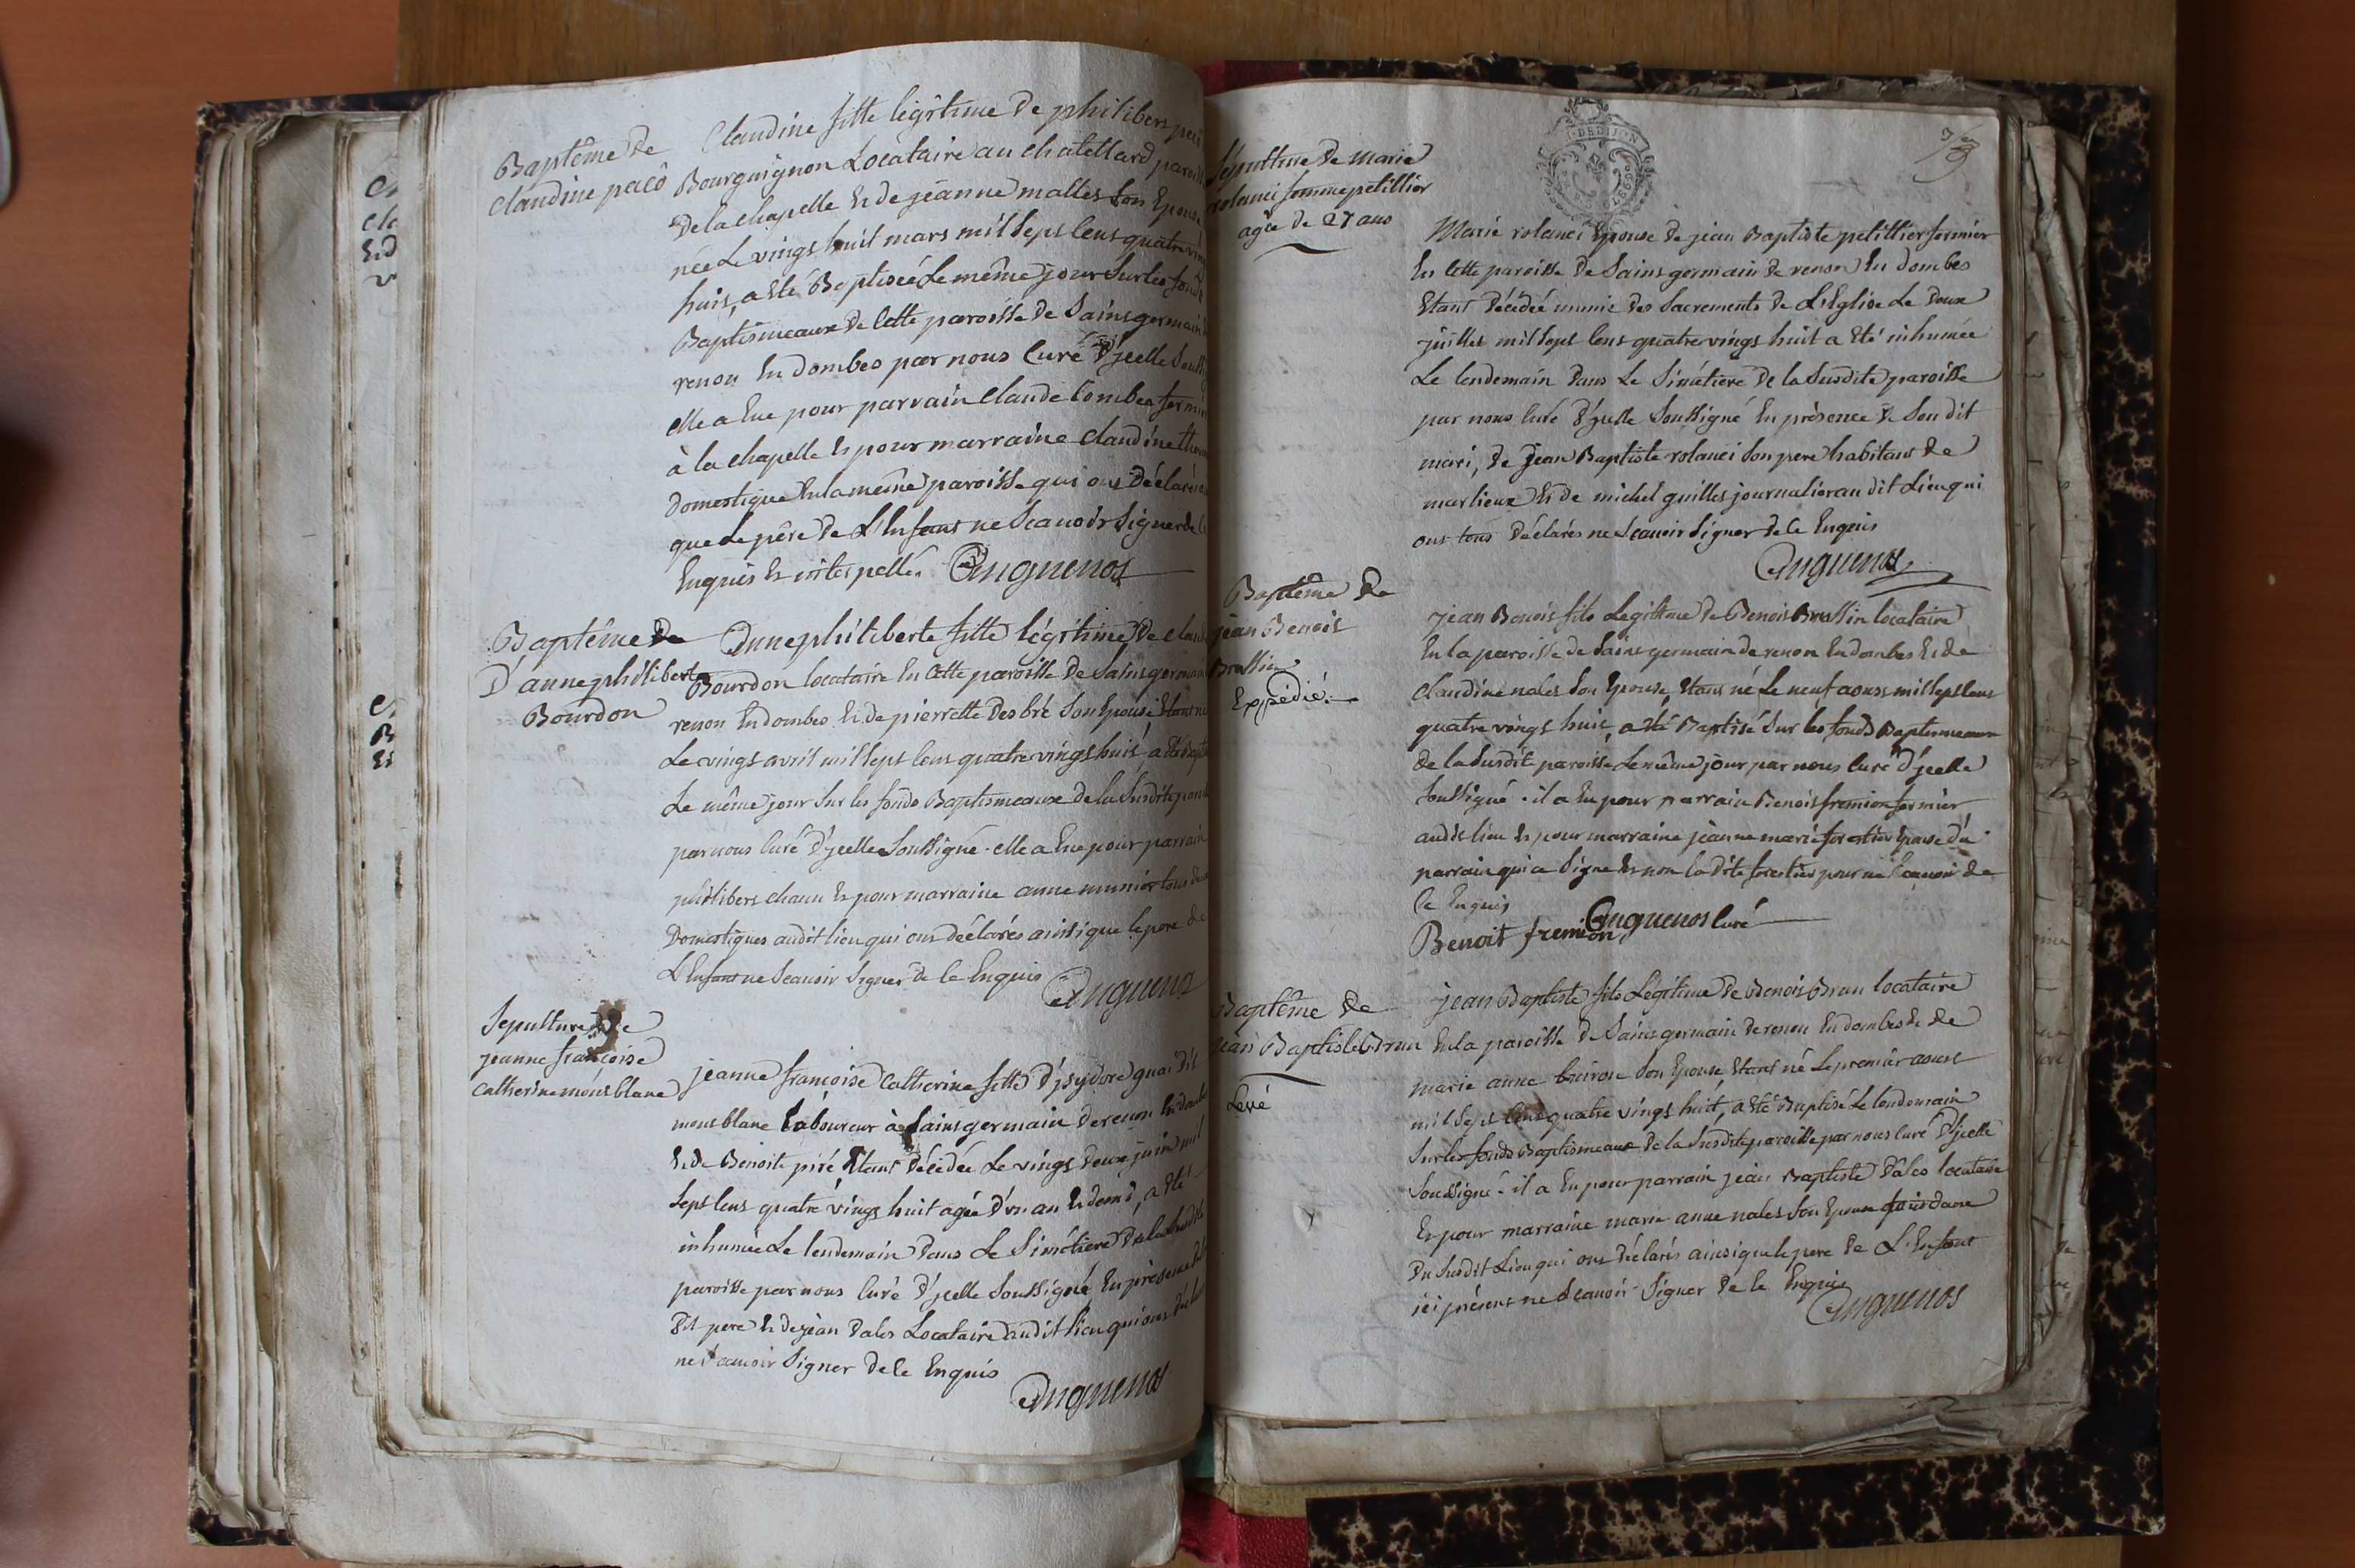 Baptême de
Claudine pacô
Claudine fille legîtime de philibert
Bourguignon Locataire au chatellard
De la chapelle et de jeanne malles son Epouse
née Le vingt huit mars mil sept Cent quatre
huit, a eté Baptisée Le même jour sur les
Baptismeaux De Cette paroisse de Saint germain
renon En dombes par nous Curé D'ycelle
elle a Eue pour parrain Claude Combes fermier
à la chapelle et pour marraine Claudine
Domestique En la même paroisse qui ont Déclarés
que Le père De L'Enfant ne Scavoir Signer de
Enquis et interpellés. Anguenot
Baptême De
D'anne philiberte
Bourdon
Anne philiberte fille légitime De
Bourdon locataire En Cette paroisse De Saint germain
renon En dombes et de pierrette Desbré son Epouse Etant
Le vingt avril mil sept Cent quatre vingt huit, a Eté
Le même jour sur les fonds Baptismeaux de la Susdite
par nous Curé D'ycelle Soussigné. elle a Eue pour parrain
philibert chanu et pour marraine anne munier tous
Domestiques audit lieu qui ont déclarés ainsi que le pere de
L'Enfant ne Scavoir Signer de Ce Enquis Anguenot
Sepulture De
jeanne françoise
catherine mont blanc
jeanne françoise Catherine fille D'ysydore guai dit
mont blanc laboureur à Saint germain De renon En
et De Benoite piré Etant Décédée Le vingt deux juin mil
Sept Cent quatre vingt huit agée D'un an et demi, a été
inhumée Le lendemain Dans Le Simétiere De la Susdite
paroisse par nous Curé D'ycelle Soussigné En présence
Dit pere et de jean Dalès Locataire audit lieu qui ont
ne Scavoir Signer de Ce Enquis
Anguenot
Sépulture De marie
rolanci femme petillier
agée de 27 ans
Marie rolanci Epouse De jean Baptiste petillier fermier
En Cette paroisse De Saint germain de renon En dombes
Etant Décédée munie Des Sacrements De L'Eglise Le Douze
juillet mil Sept Cent quatre vingt huit a Eté inhumée
Le lendemain Dans Le Simétiere De la Susdite paroisse
par nous Curé D'ycelle Soussigné En présence De Son dit
mari, de Jean Baptiste rolanci Son pere habitant de
marlieux et de michel guilles journalier au dit Lieu qui
ont tous Déclarés ne Scavoir Signer de Ce Enquis
Anguenot
Baptême De
jean Benoit
Brassin
Expédié.
jean Benoit fils Legitime De Benoit Brassin locataire
En la paroisse de Saint germain de renon En dombes et de
Claudine nales Son Epouse, Etant né Le neuf aoust mil Sept Cent
quatre vingt huit, a Eté Baptisé Sur les fonds Baptismeaux
de la Susdite paroisse Le même jour par nous Curé D'ycelle
Soussigné. il a Eu pour parrain Benoit fremion fermier
audit lieu et pour marraine jeanne marie forestier Epouse Du
parrain qui a Signé et non la Dite forestier pour ne Scavoir de
Ce Enquis Anguenot Curé
Benoit fremion
Baptême De
jean Baptiste Brun
Levé
jean Baptiste fils Légitime De Benoit Brun locataire
En la paroisse De Saint germain De renon En dombes et de
marie anne Son Epouse, Etant né Le premier aoust
mil Sept Cent quatre vingt huit, a Eté Baptisé Le lendemain
Sur les fonds Baptismeaux De la Susdite paroisse par nous Curé D'ycelle
Soussigné. il a Eu pour parrain jean Baptiste Dalès locataire
Et pour marraine marie anne nales Son Epouse tous deux
Du Susdit Lieu qui ont Déclarés ainsi que le pere De L'Enfant
ici présent ne Scavoir Signer De Ce Enquis
Anguenot